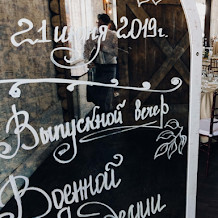 21 июня 2019г.
Выпускной вечер
Военной